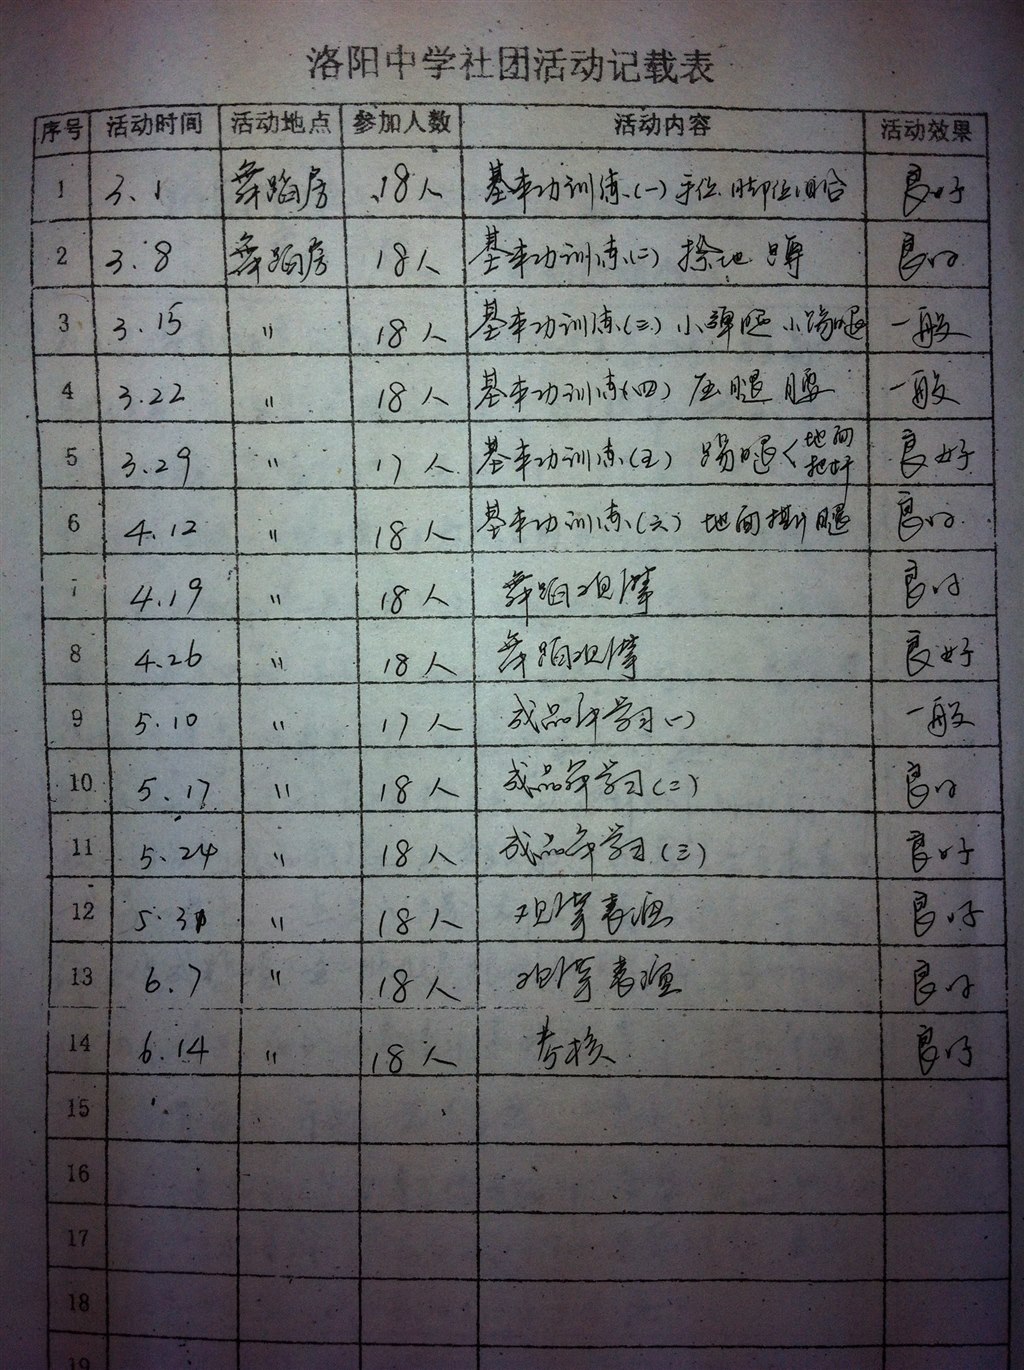 洛阳中学社团活动记载表
序号 活动时间 活动地点 参加人数 活动内容 活动效果
1 3.1 舞蹈房 18人 基本功训练(一)手位、脚位组合 良好
2 3.8 舞蹈房 18人 基本功训练(二) 擦地 蹲 良好
3 3.15 〃 18人 基本功训练(三) 小弹腿 小踢腿 一般
4 3.22 〃 18人 基本功训练(四) 压腿 腰 一般
5 3.29 〃 17人 基本功训练(五) 踢腿〈地面 把杆 良好
6 4.12 〃 18人 基本功训练(六) 地面撕腿 良好
7 4.19 〃 18人 舞蹈观摩 良好
8 4.26 〃 18人 舞蹈观摩 良好
9 5.10 〃 17人 成品舞学习(一) 一般
10 5.17 〃 18人 成品舞学习(二) 良好
11 5.24 〃 18人 成品舞学习(三) 良好
12 5.31 〃 18人 观摩表演 良好
13 6.7 〃 18人 观摩表演 良好
14 6.14 〃 18人 考核 良好
15
16
17
18
19